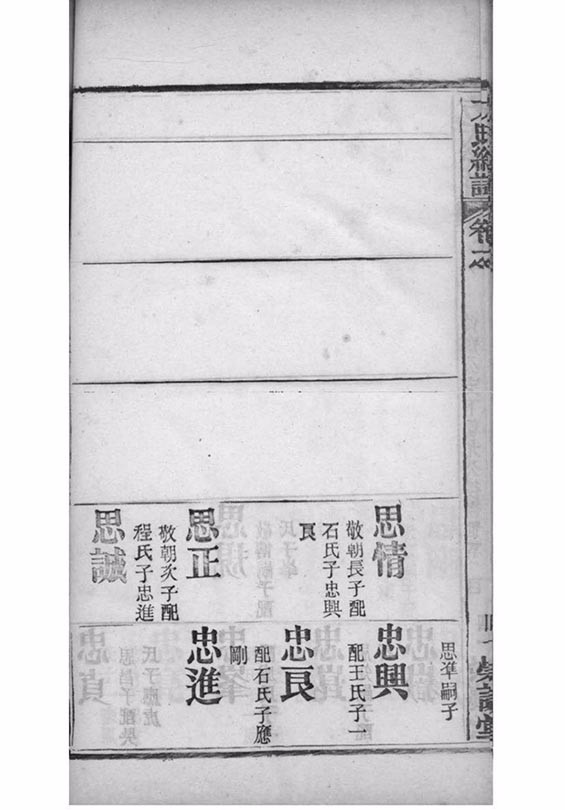 氏總譜
卷
思情
敬朝長子配
石氏子忠興
良
思正
敬朝次子配
程氏子忠進
思誠
思準嗣子
忠興
配王氏子一
忠良
配石氏子應
剛
忠進